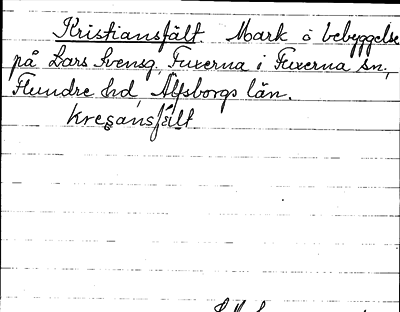 Kristiansfält. Mark o bebyggelse
på Lars Svensg. Fuxerna i Fuxerna sn,
Flundre hd, Älfsborgs län.
kresansfält